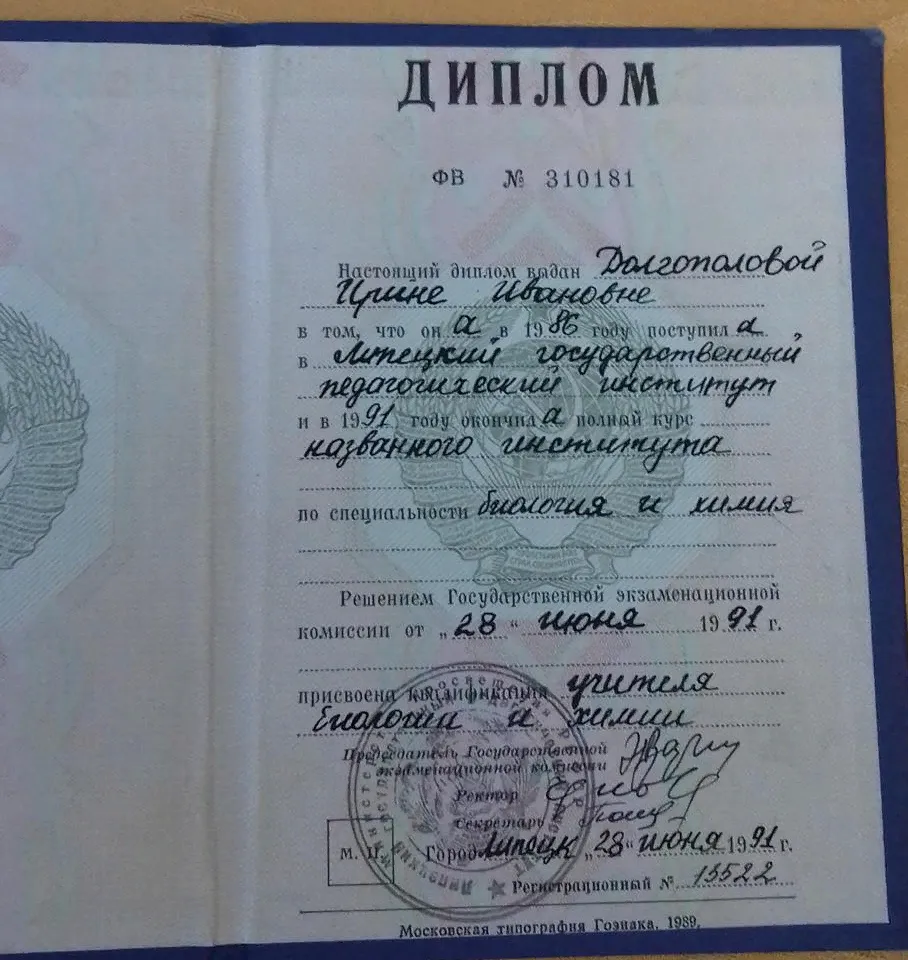 ДИПЛОМ
ФВ № 310181
Настоящий диплом выдан Долгополовой
Ирине Ивановне
в том, что он а в 1986 году поступил а
в Липецкий государственный
педагогический институт
и в 1991 году окончил а полный курс
названного института
по специальности биология и химия
Решением Государственной экзаменационной
комиссии от „28“ июня 1991 г.
присвоена квалификация учителя
биологии и химии
Председатель Государственной
экзаменационной комиссии
Ректор
Секретарь
М. П. Город Липецк „28“ июня 1991 г.
Регистрационный № 15522
Московская типография Гознака, 1989.